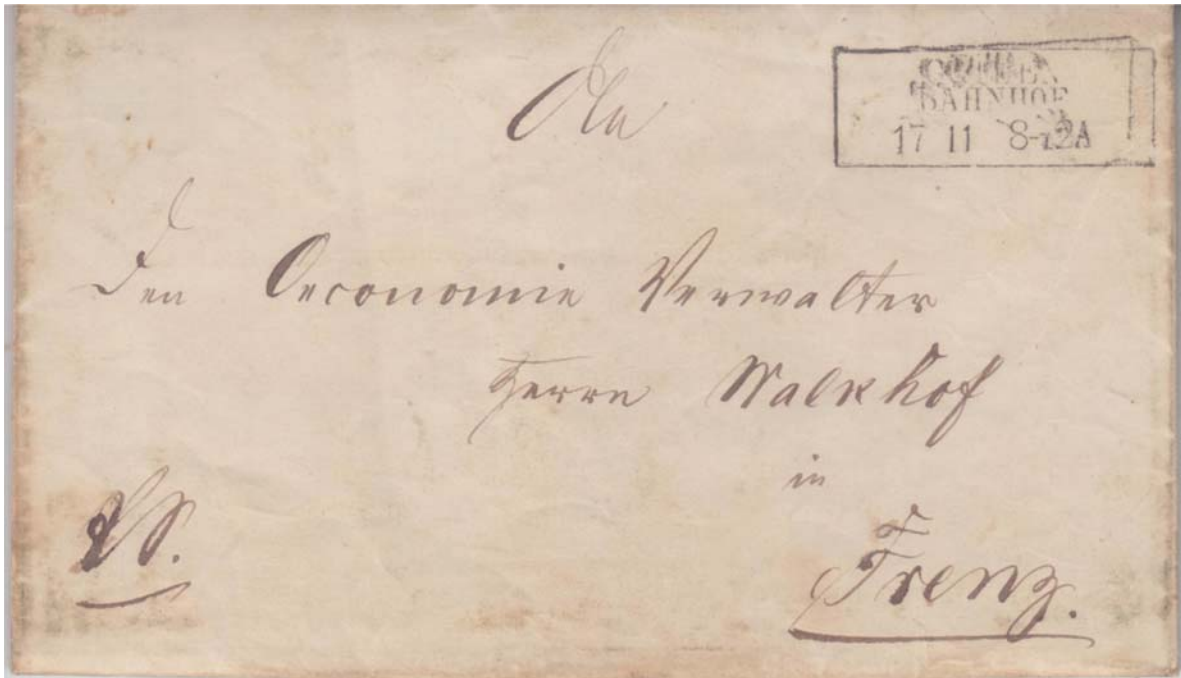 BAHNHOF
17 11 8-12A
An
Den Oeconomie Verwalter
Herrn Walkhof
in
Frenz.